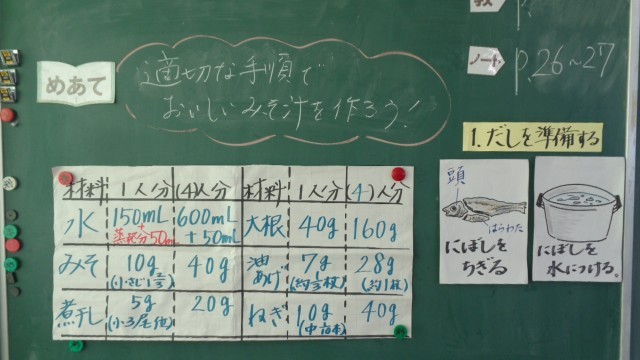 めあて
適切な手順で
おいしいみそ汁を作ろう!
教
ノート
P.26~27
1.だしを準備する
材料 1人分 (4)人分 材料 1人分 (4)人分
水 150mL 600mL 大根 40g 160g
+ 蒸発分50m + 50mL
みそ 10g 40g 油あげ 7g 28g
(小さじ1 2/3) (約1/3枚) (約1枚)
煮干し 5g 20g ねぎ 10g 40g
(小3尾他)
頭
はらわた
にぼしを
ちぎる
にぼしを
水につける。